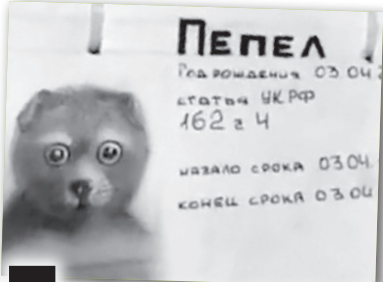 ПЕПЕЛ
ГОД РОЖДЕНИЯ 03.04.
СТАТЬЯ УК РФ
162 2 4
НАЧАЛО СРОКА 03.04.
КОНЕЦ СРОКА 03.04